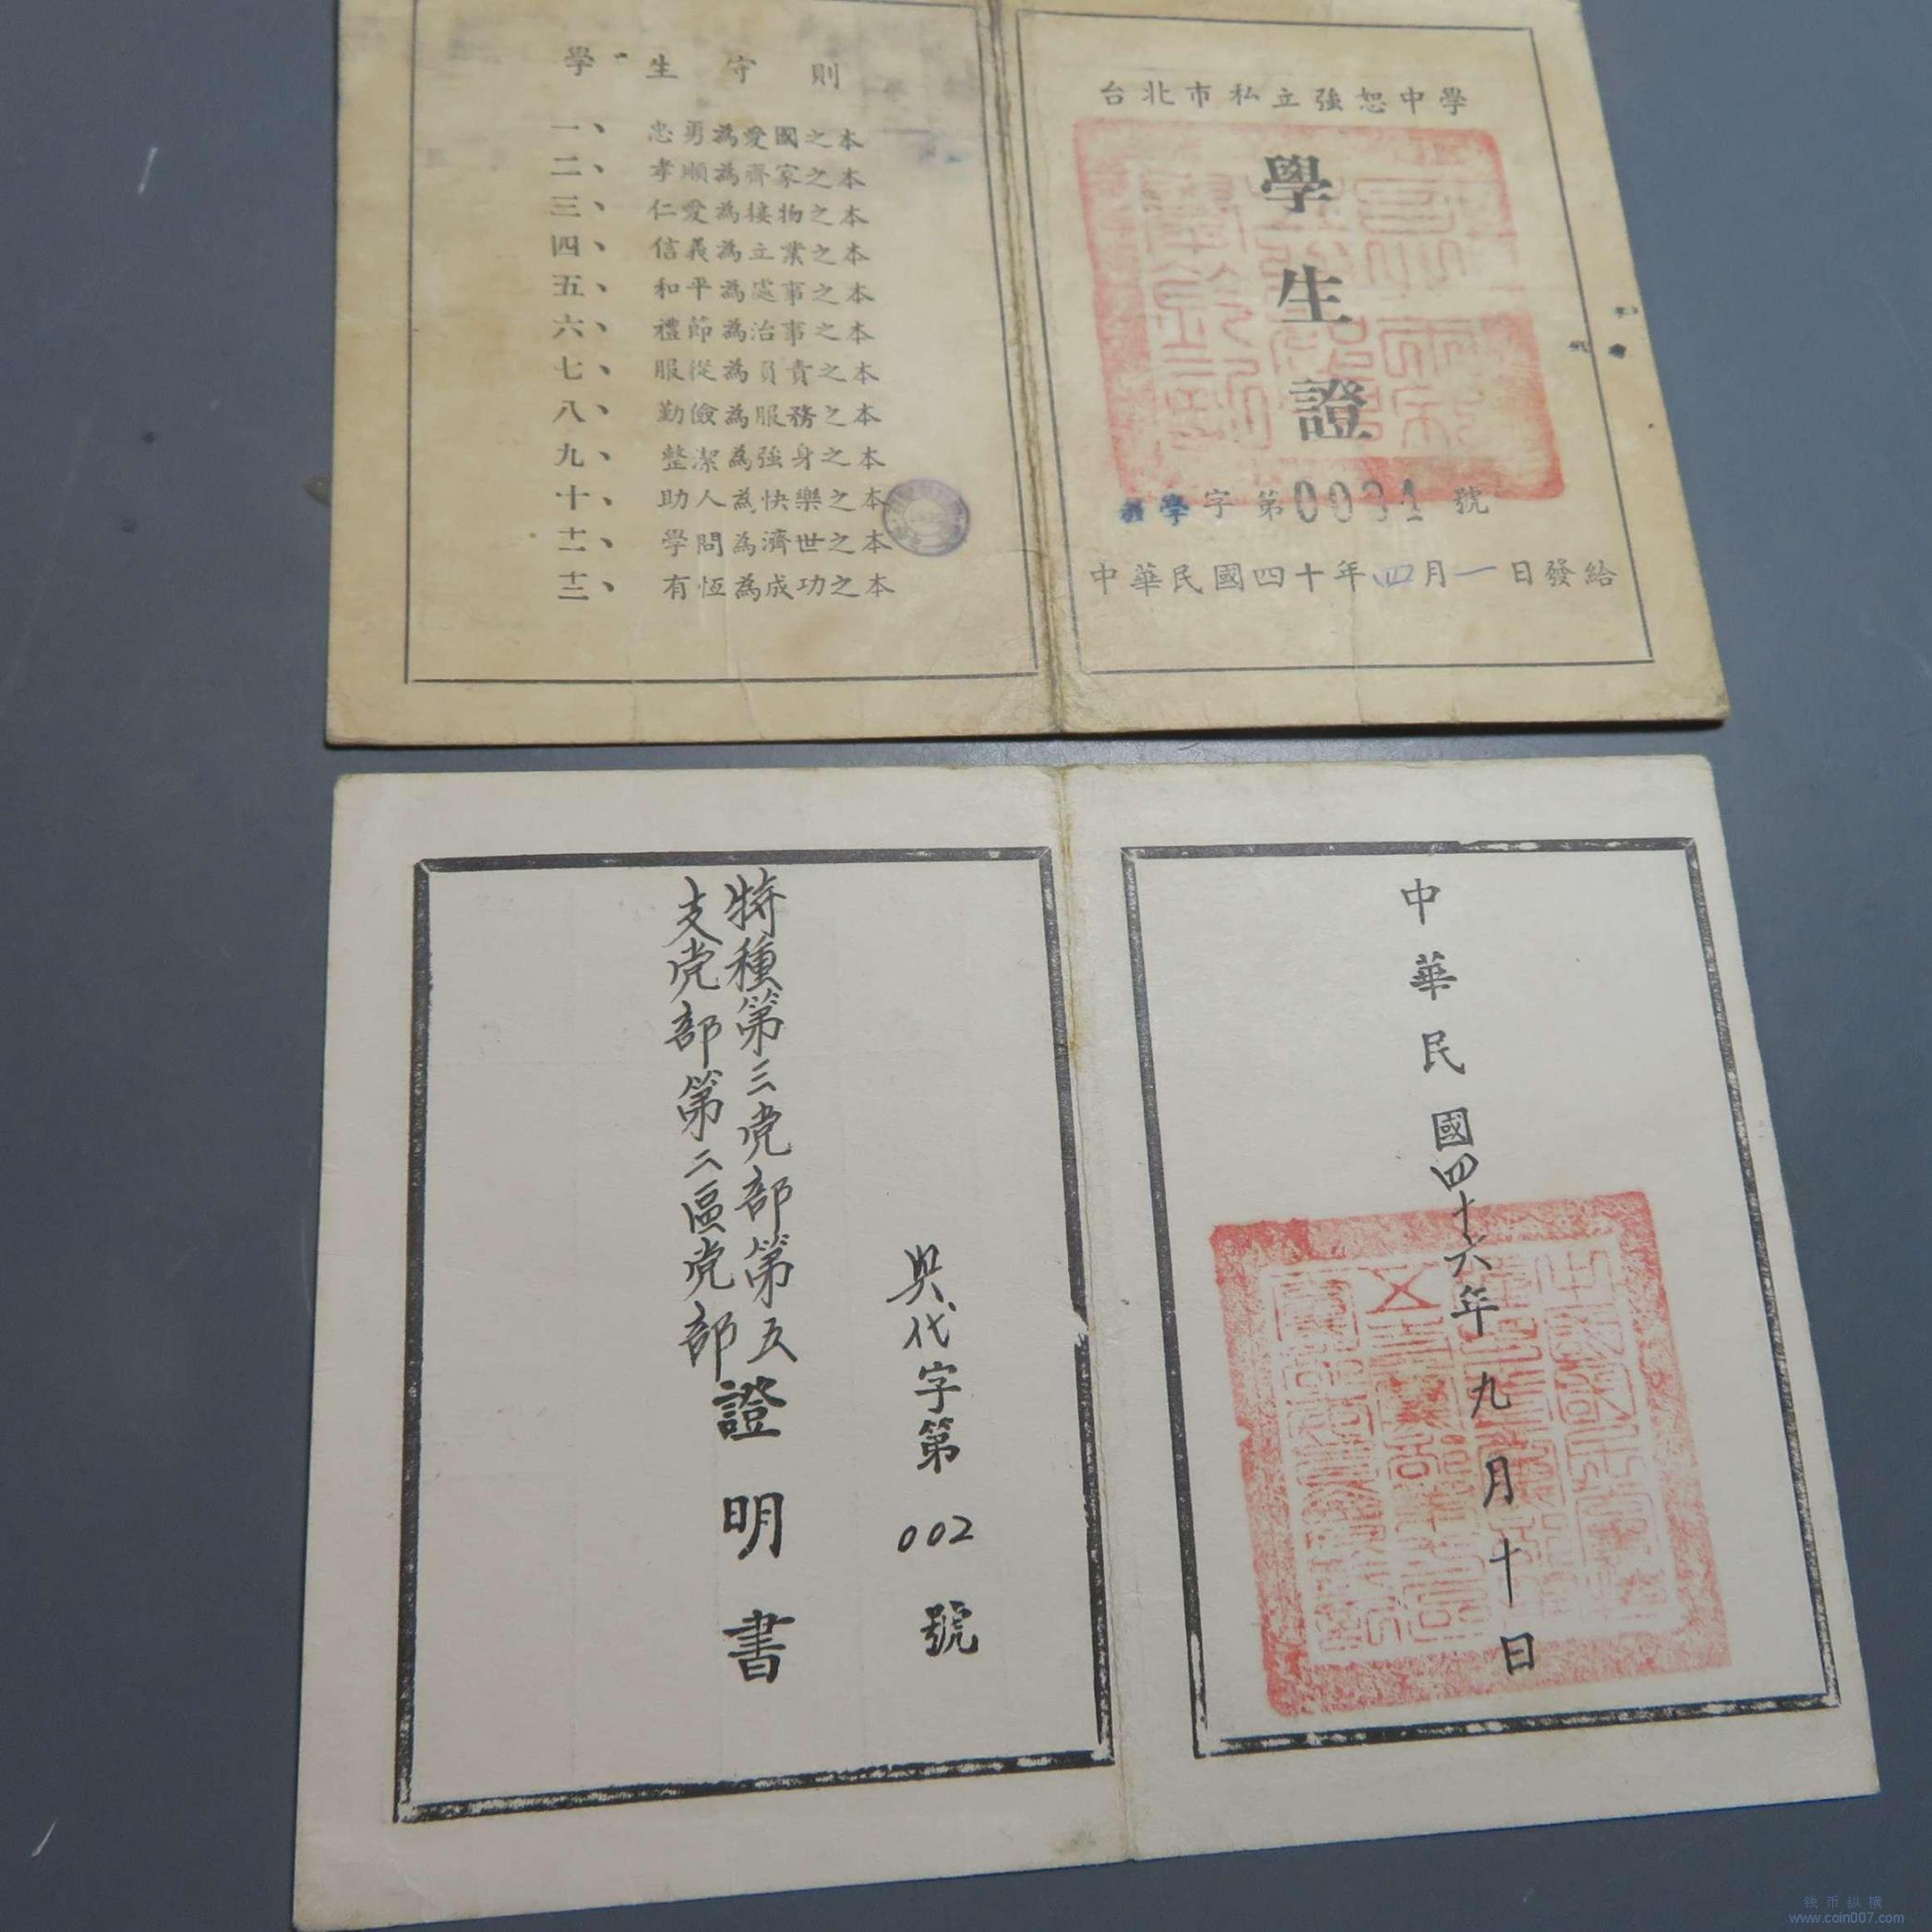 台北市私立強恕中學
學生證
學字第0031號
中華民國四十年四月一日發給
學生守則
一、忠勇為愛國之本
二、孝順為齊家之本
三、仁愛為接物之本
四、信義為立業之本
五、和平為處事之本
六、禮節為治事之本
七、服從為負責之本
八、勤儉為服務之本
九、整潔為強身之本
十、助人為快樂之本
十一、學問為濟世之本
十二、有恆為成功之本
中華民國四十六年九月十日
代字第002號
特種第三党部第五
支党部第二區党部
證明書
钱币纵横
www.coin007.com